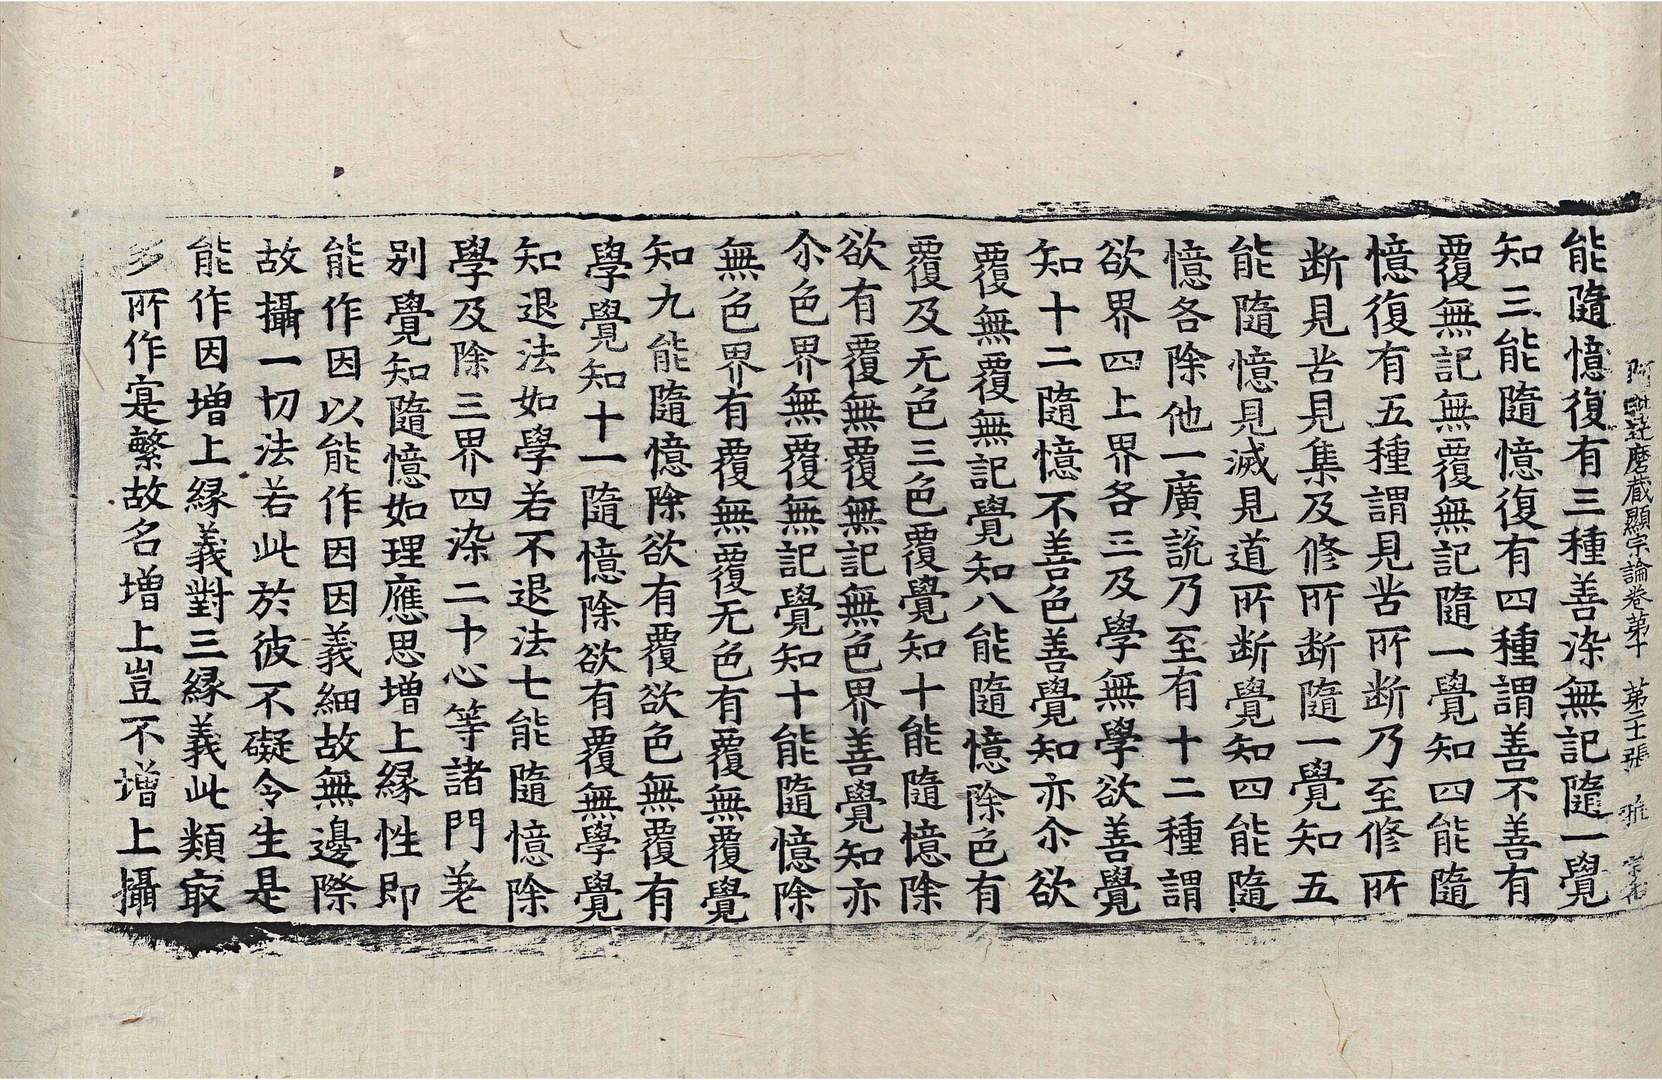 阿毗達磨藏顯宗論卷第十　第二十張　雅
能隨憶復有三種善染無記隨一覺
知三能隨憶復有四種謂善不善有
覆無記無覆無記隨一覺知四能隨
憶復有五種謂見苦所断乃至修所
断見苦見集及修所断隨一覺知五
能隨憶見滅見道所断覺知四能隨
憶各除他一廣說乃至有十二種謂
欲界四上界各三及學無學欲善覺
知十二隨憶不善色善覺知亦尒欲
覆無覆無記覺知八能隨憶除色有
覆及无色三色覆覺知十能隨憶除
欲有覆無覆無記無色界善覺知亦
尒色界無覆無記覺知十能隨憶除
無色界有覆無覆无色有覆無覆覺
知九能隨憶除欲有覆欲色無覆有
學覺知十一隨憶除欲有覆無學覺
知退法如學若不退法七能隨憶除
學及除三界四染二十心等諸門差
别覺知隨憶如理應思增上緣性即
能作因以能作因因義細故無邊際
故攝一切法若此於彼不礙令生是
能作因增上緣義對三緣義此類㝡
多所作寔繁故名增上豈不增上攝